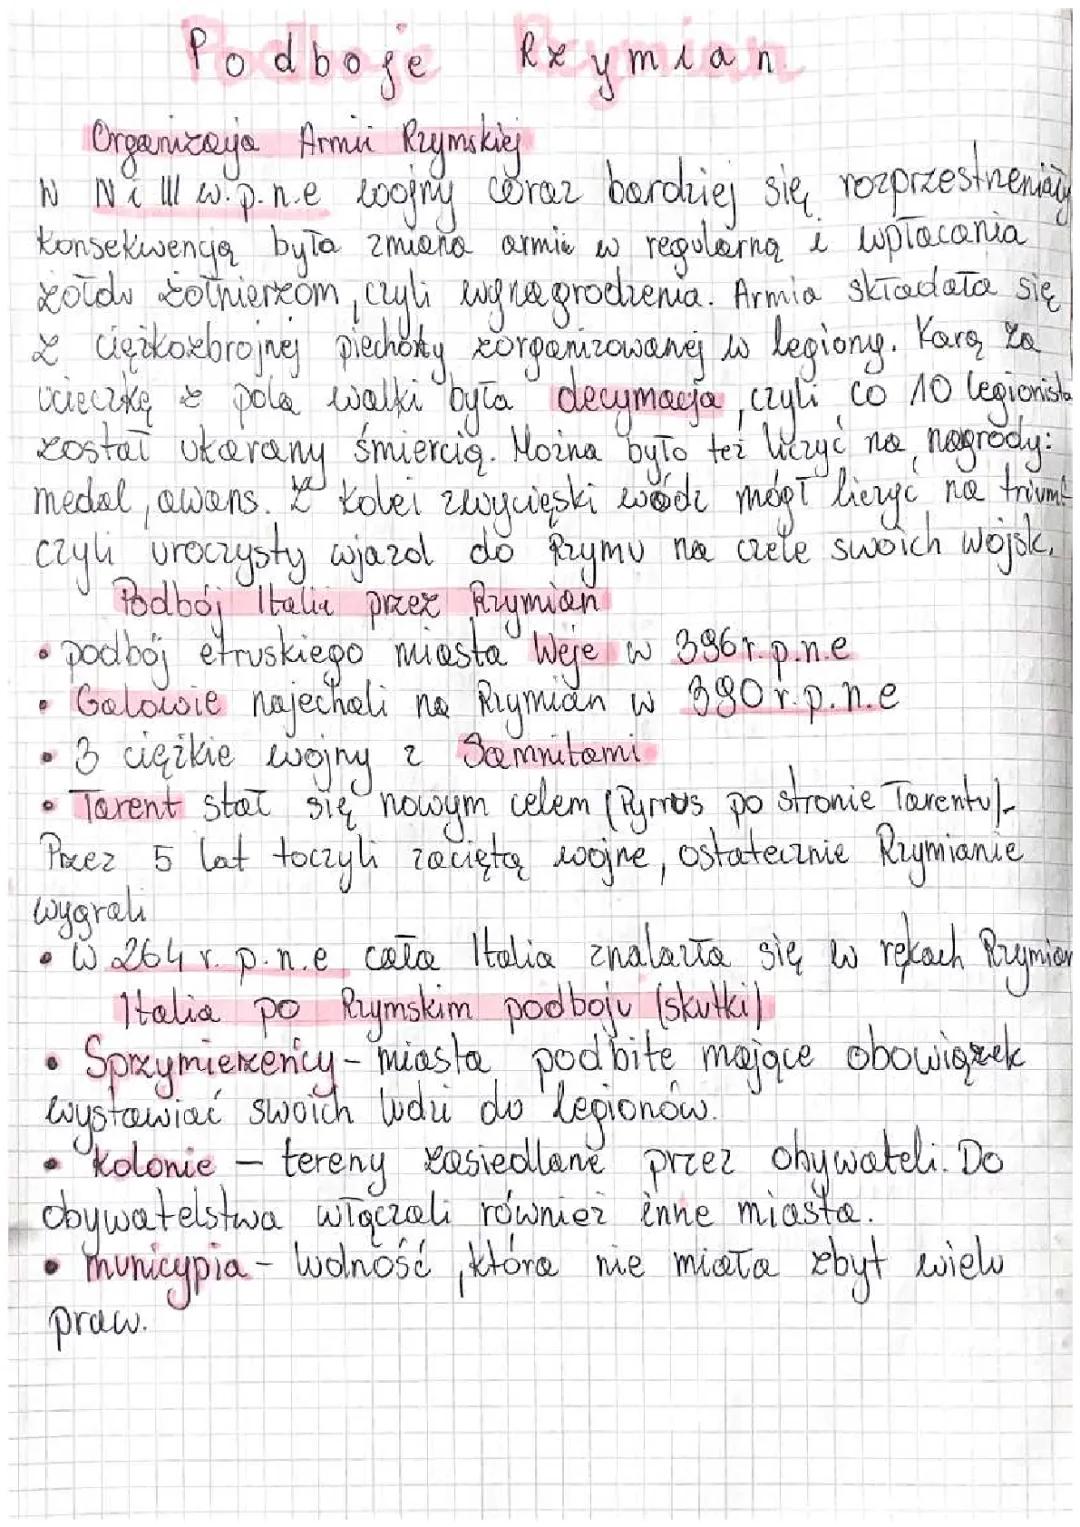 Podboje Rzymian
Organizacja Armii Rzymskiej
W IV i III w.p.n.e wojny coraz bardziej się rozprzestrzeniały
konsekwencją była zmiana armie w regularną i wpłacania
żołdu żołnierzom, czyli wynagrodzenia. Armia składała się
z ciężkozbrojnej piechoty zorganizowanej w legiony. Karą za
ucieczkę z pola walki była decymacja, czyli co 10 legionista
został ukarany śmiercią. Można było też liczyć na nagrody:
medal, awans. Z kolei zwycięski wódz mógł liczyć na triumf
czyli uroczysty wjazd do Rzymu na czele swoich wojsk.
Podbój Italii przez Rzymian
• podbój etruskiego miasta Weje w 396r.p.n.e
• Galowie najechali na Rzymian w 390r.p.n.e
• 3 ciężkie wojny z Samnitami
• Tarent stał się nowym celem (Pyrrus po stronie Tarentu)-
Przez 5 lat toczyli zaciętą wojne, ostatecznie Rzymianie
wygrali
• W 264 r. p.n.e cała Italia znalazła się w rękach Rzymian
Italia po Rzymskim podboju (skutki)
• Sprzymierzeńcy - miasta podbite mające obowiązek
wystawiać swoich ludzi do legionów.
• kolonie - tereny zasiedlane przez obywateli. Do
obywatelstwa włączali również inne miasta.
• municypia - ludność, która nie miała zbyt wielu
praw.